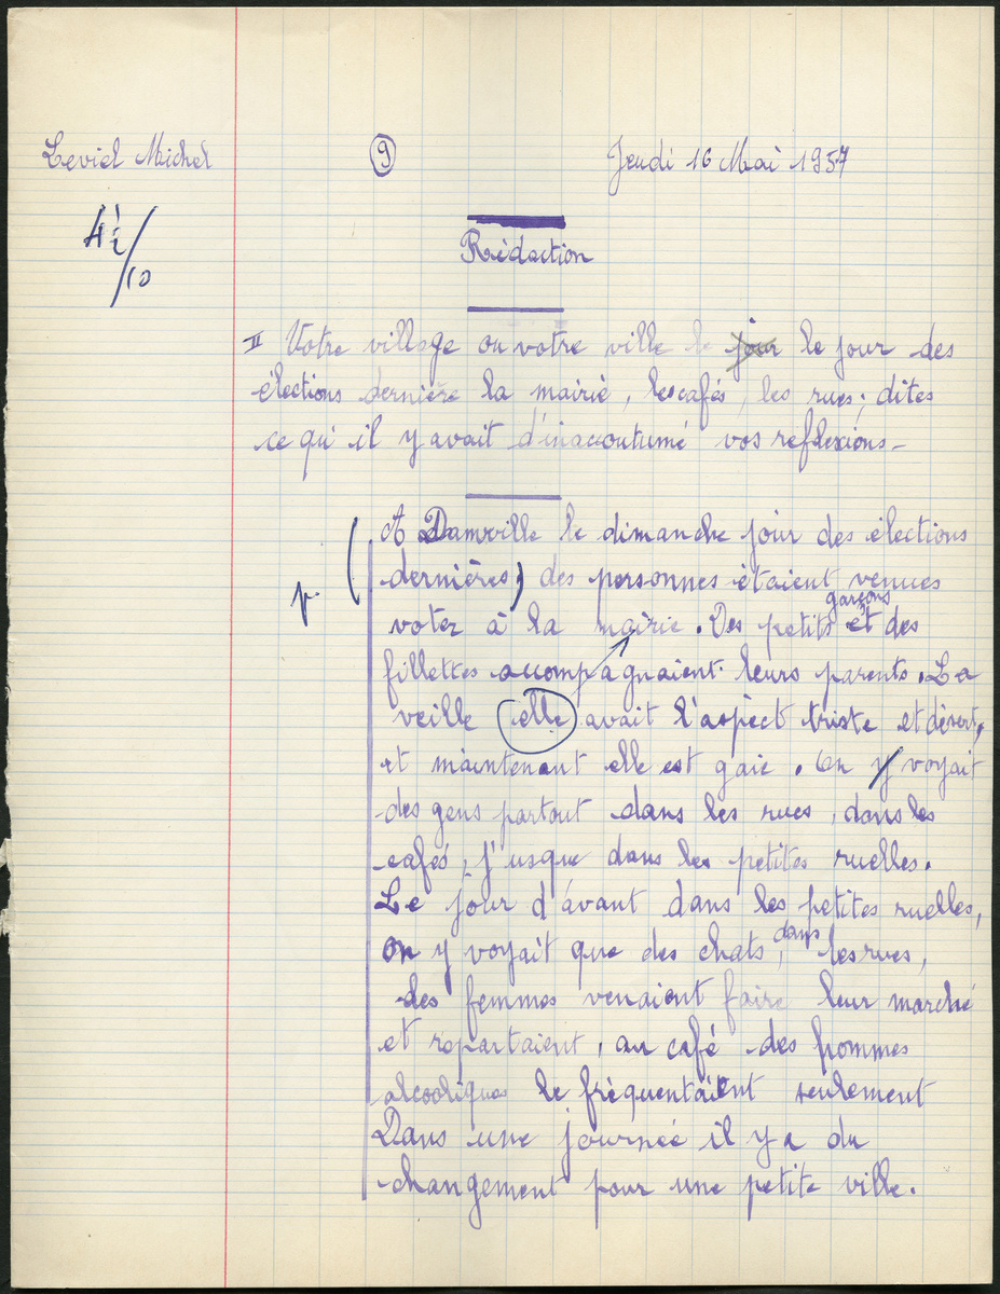 Leviel Michel
9
Jeudi 16 Mai 1957
4½/10
Rédaction
II Votre village ou votre ville le jour le jour des
élections dernière la mairie, les cafés, les rues; dites
ce qu'il y avait d'inaccoutumé vos reflexions -
A Damville le dimanche jour des élections
dernières) des personnes étaient venues
garçons
voter à la mairie. Des petits et des
fillettes accompagnaient leurs parents. La
veille elle avait l'aspect triste et désert,
et maintenant elle est gaie. On y voyait
des gens partout dans les rues, dans les
cafés, j'usque dans les petites ruelles.
Le jour d'avant dans les petites ruelles,
dans
on y voyait que des chats, les rues,
des femmes venaient faire leur marché
et repartaient, au café des hommes
alcooliques le fréquentaient seulement
Dans une journée il y a du
changement pour une petite ville.